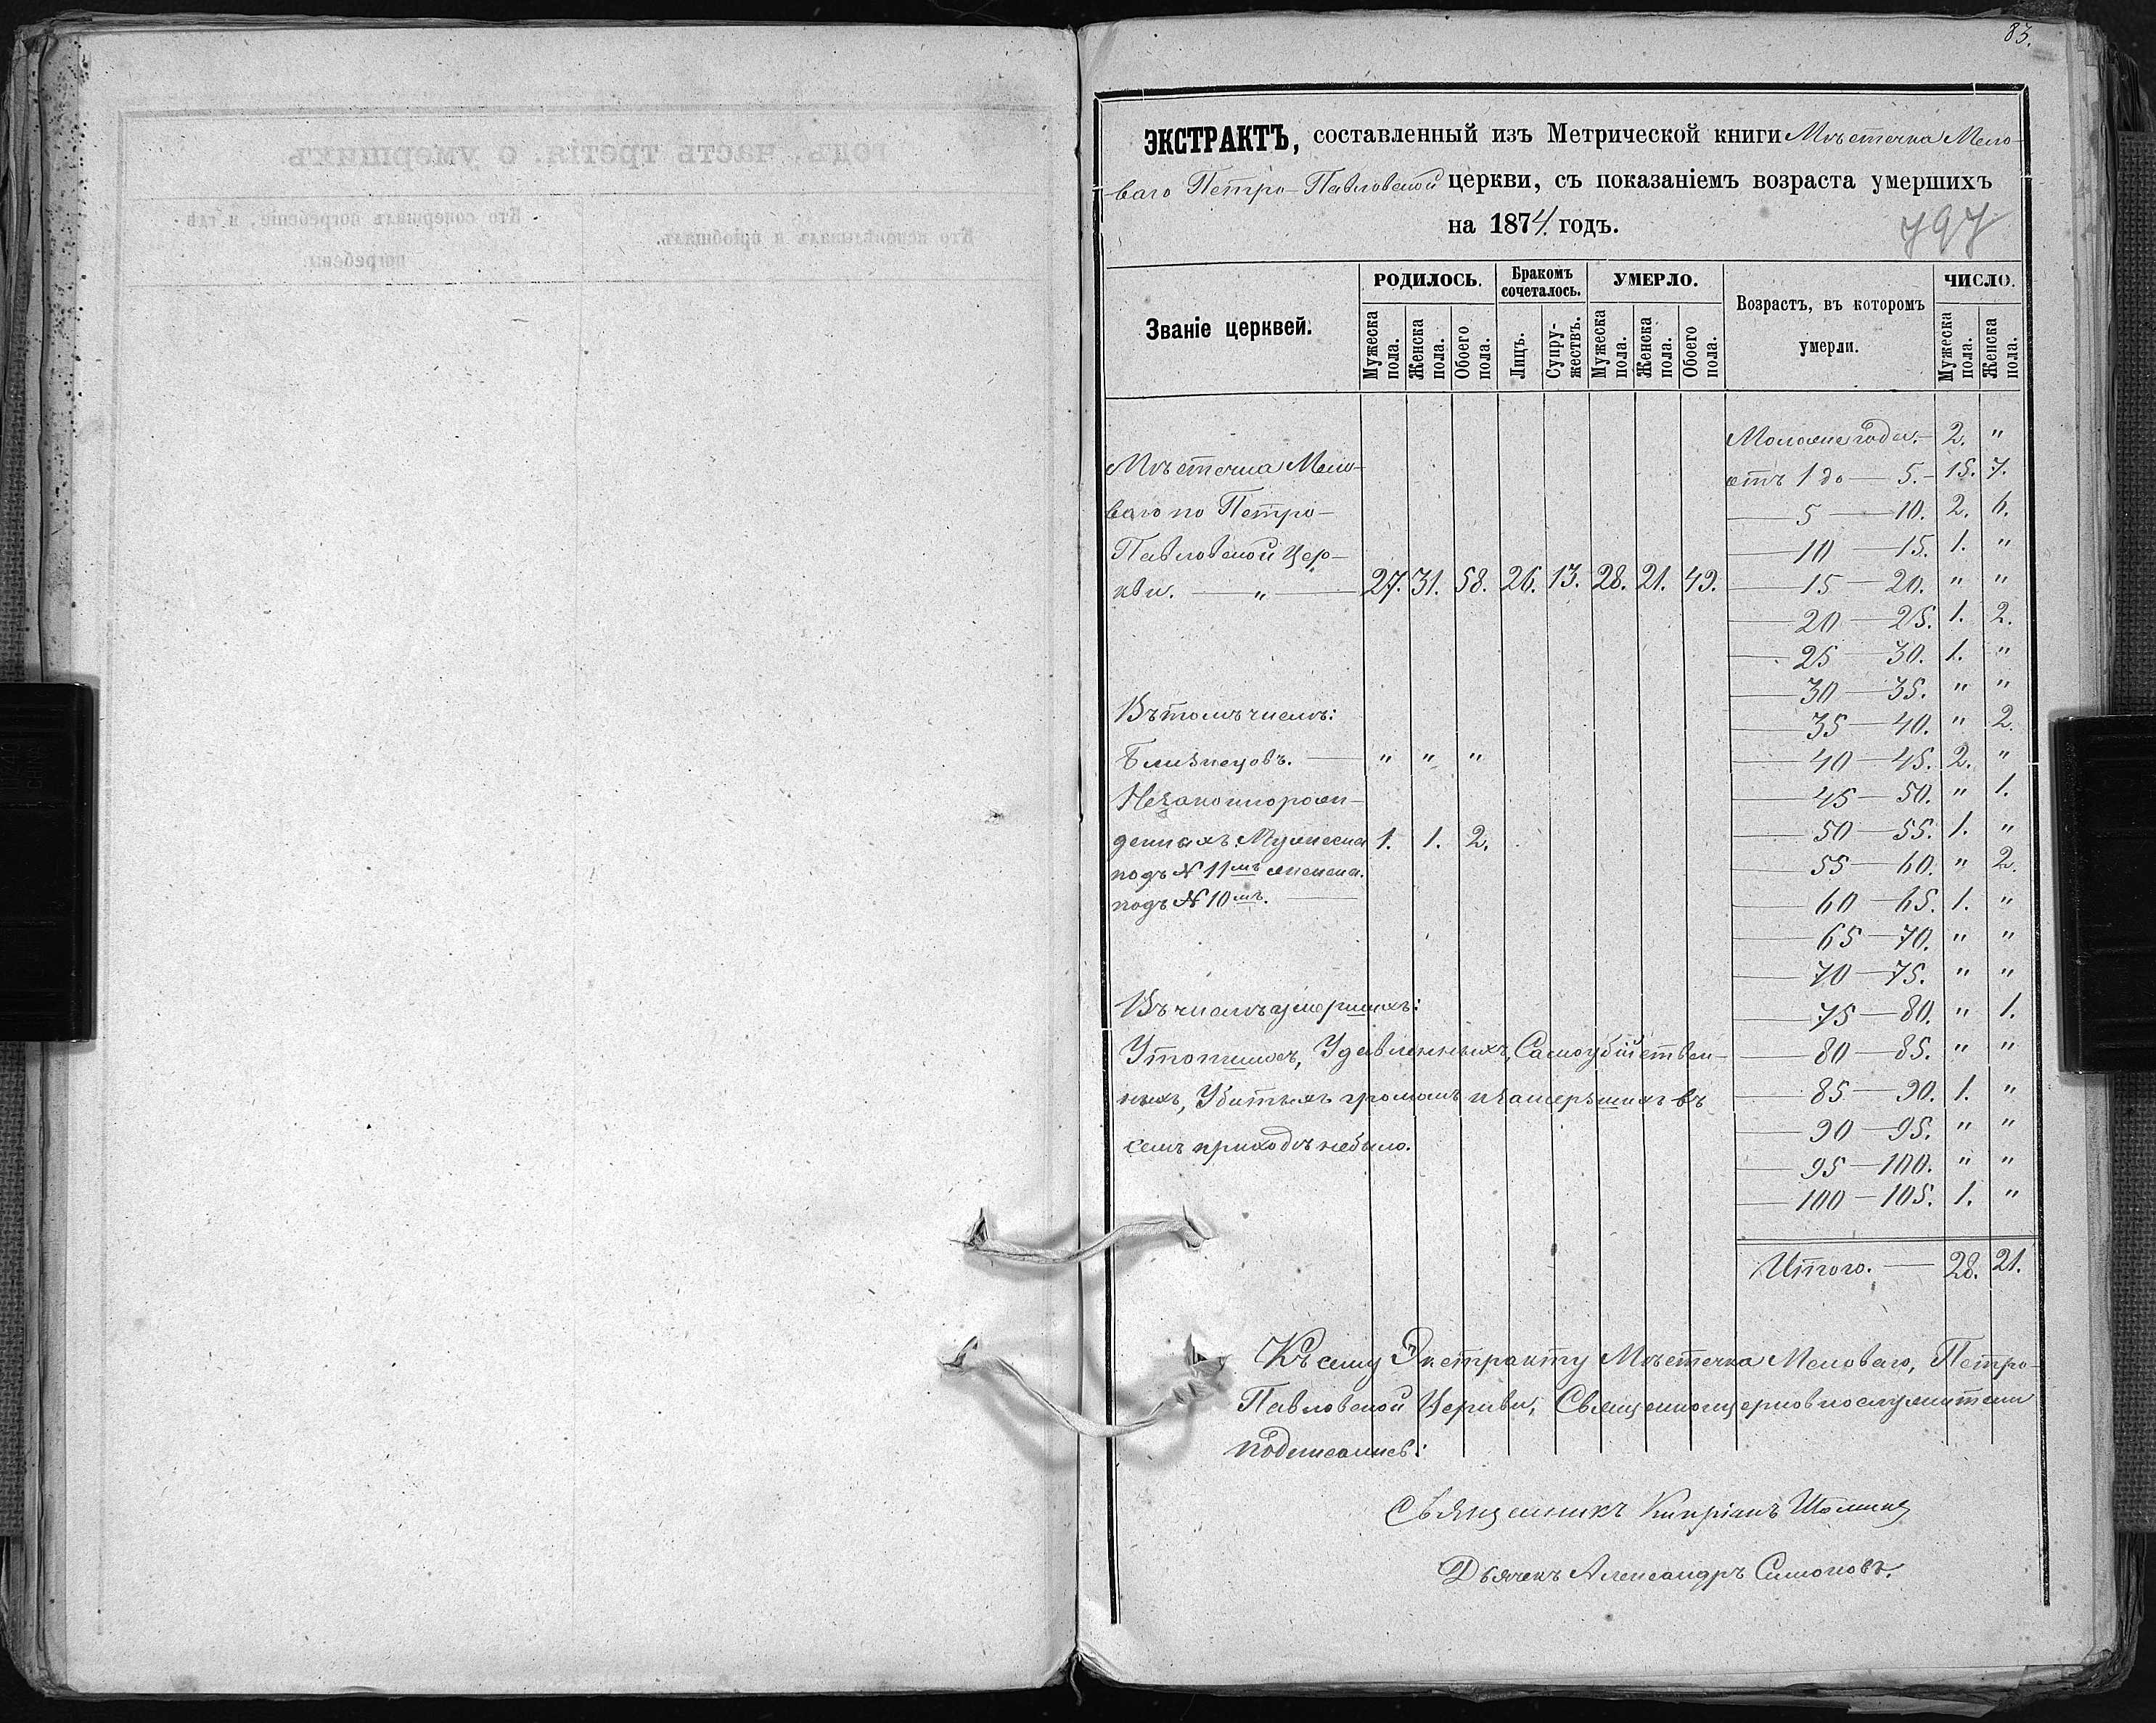 83.
ЭКСТРАКТЪ, составленный изъ Метрической книги Мѣстечка Мело-
ваго Петро-Павловской церкви, съ показаніемъ возраста умершихъ
на 1874 годъ.
797
Званіе церквей.
РОДИЛОСЬ.
Бракомъ сочеталось.
УМЕРЛО.
Возрастъ, въ которомъ умерли.
ЧИСЛО.
Мужеска пола.
Женска пола.
Обоего пола.
Лицъ.
Супружествъ.
Мужеска пола.
Женска пола.
Обоего пола.
Мужеска пола.
Женска пола.
Мѣстечка Мело-
ваго по Петро-
Павловской Цер-
кви. — „ — 27. 31. 58. 26. 13. 28. 21. 49.
Въ томъ числѣ:
Близнецовъ. — „ „ „
Незаконнорож-
денныхъ Мужеска 1. 1. 2.
подъ № 11мъ женска.
подъ № 10мъ. —
Въ числѣ умершихъ:
Утопшихъ, Удавленныхъ, Самоубійствен-
ныхъ, Убитыхъ громомъ и замерзшихъ въ
семъ приходѣ небыло.
Моложе года. — 2. „
отъ 1 до — 5. — 15. 7.
— 5 — 10. 2. 6.
— 10 — 15. 1. „
— 15 — 20. „ „
— 20 — 25. 1. 2.
— 25 — 30. 1. „
— 30 — 35. „ „
— 35 — 40. „ 2.
— 40 — 45. 2. „
— 45 — 50. „ 1.
— 50 — 55. 1. „
— 55 — 60. „ 2.
— 60 — 65. 1. „
— 65 — 70. „ „
— 70 — 75. „ „
— 75 — 80. „ 1.
— 80 — 85. „ „
— 85 — 90. 1. „
— 90 — 95. „ „
— 95 — 100. „ „
— 100 — 105. 1. „
Итого. — 28. 21.
Къ сему Экстракту Мѣстечка Меловаго, Петро-
Павловской Церкви, Священноцерковнослужители
подписались:
Священникъ Кипріанъ
Дьячекъ Александръ Симоновъ.